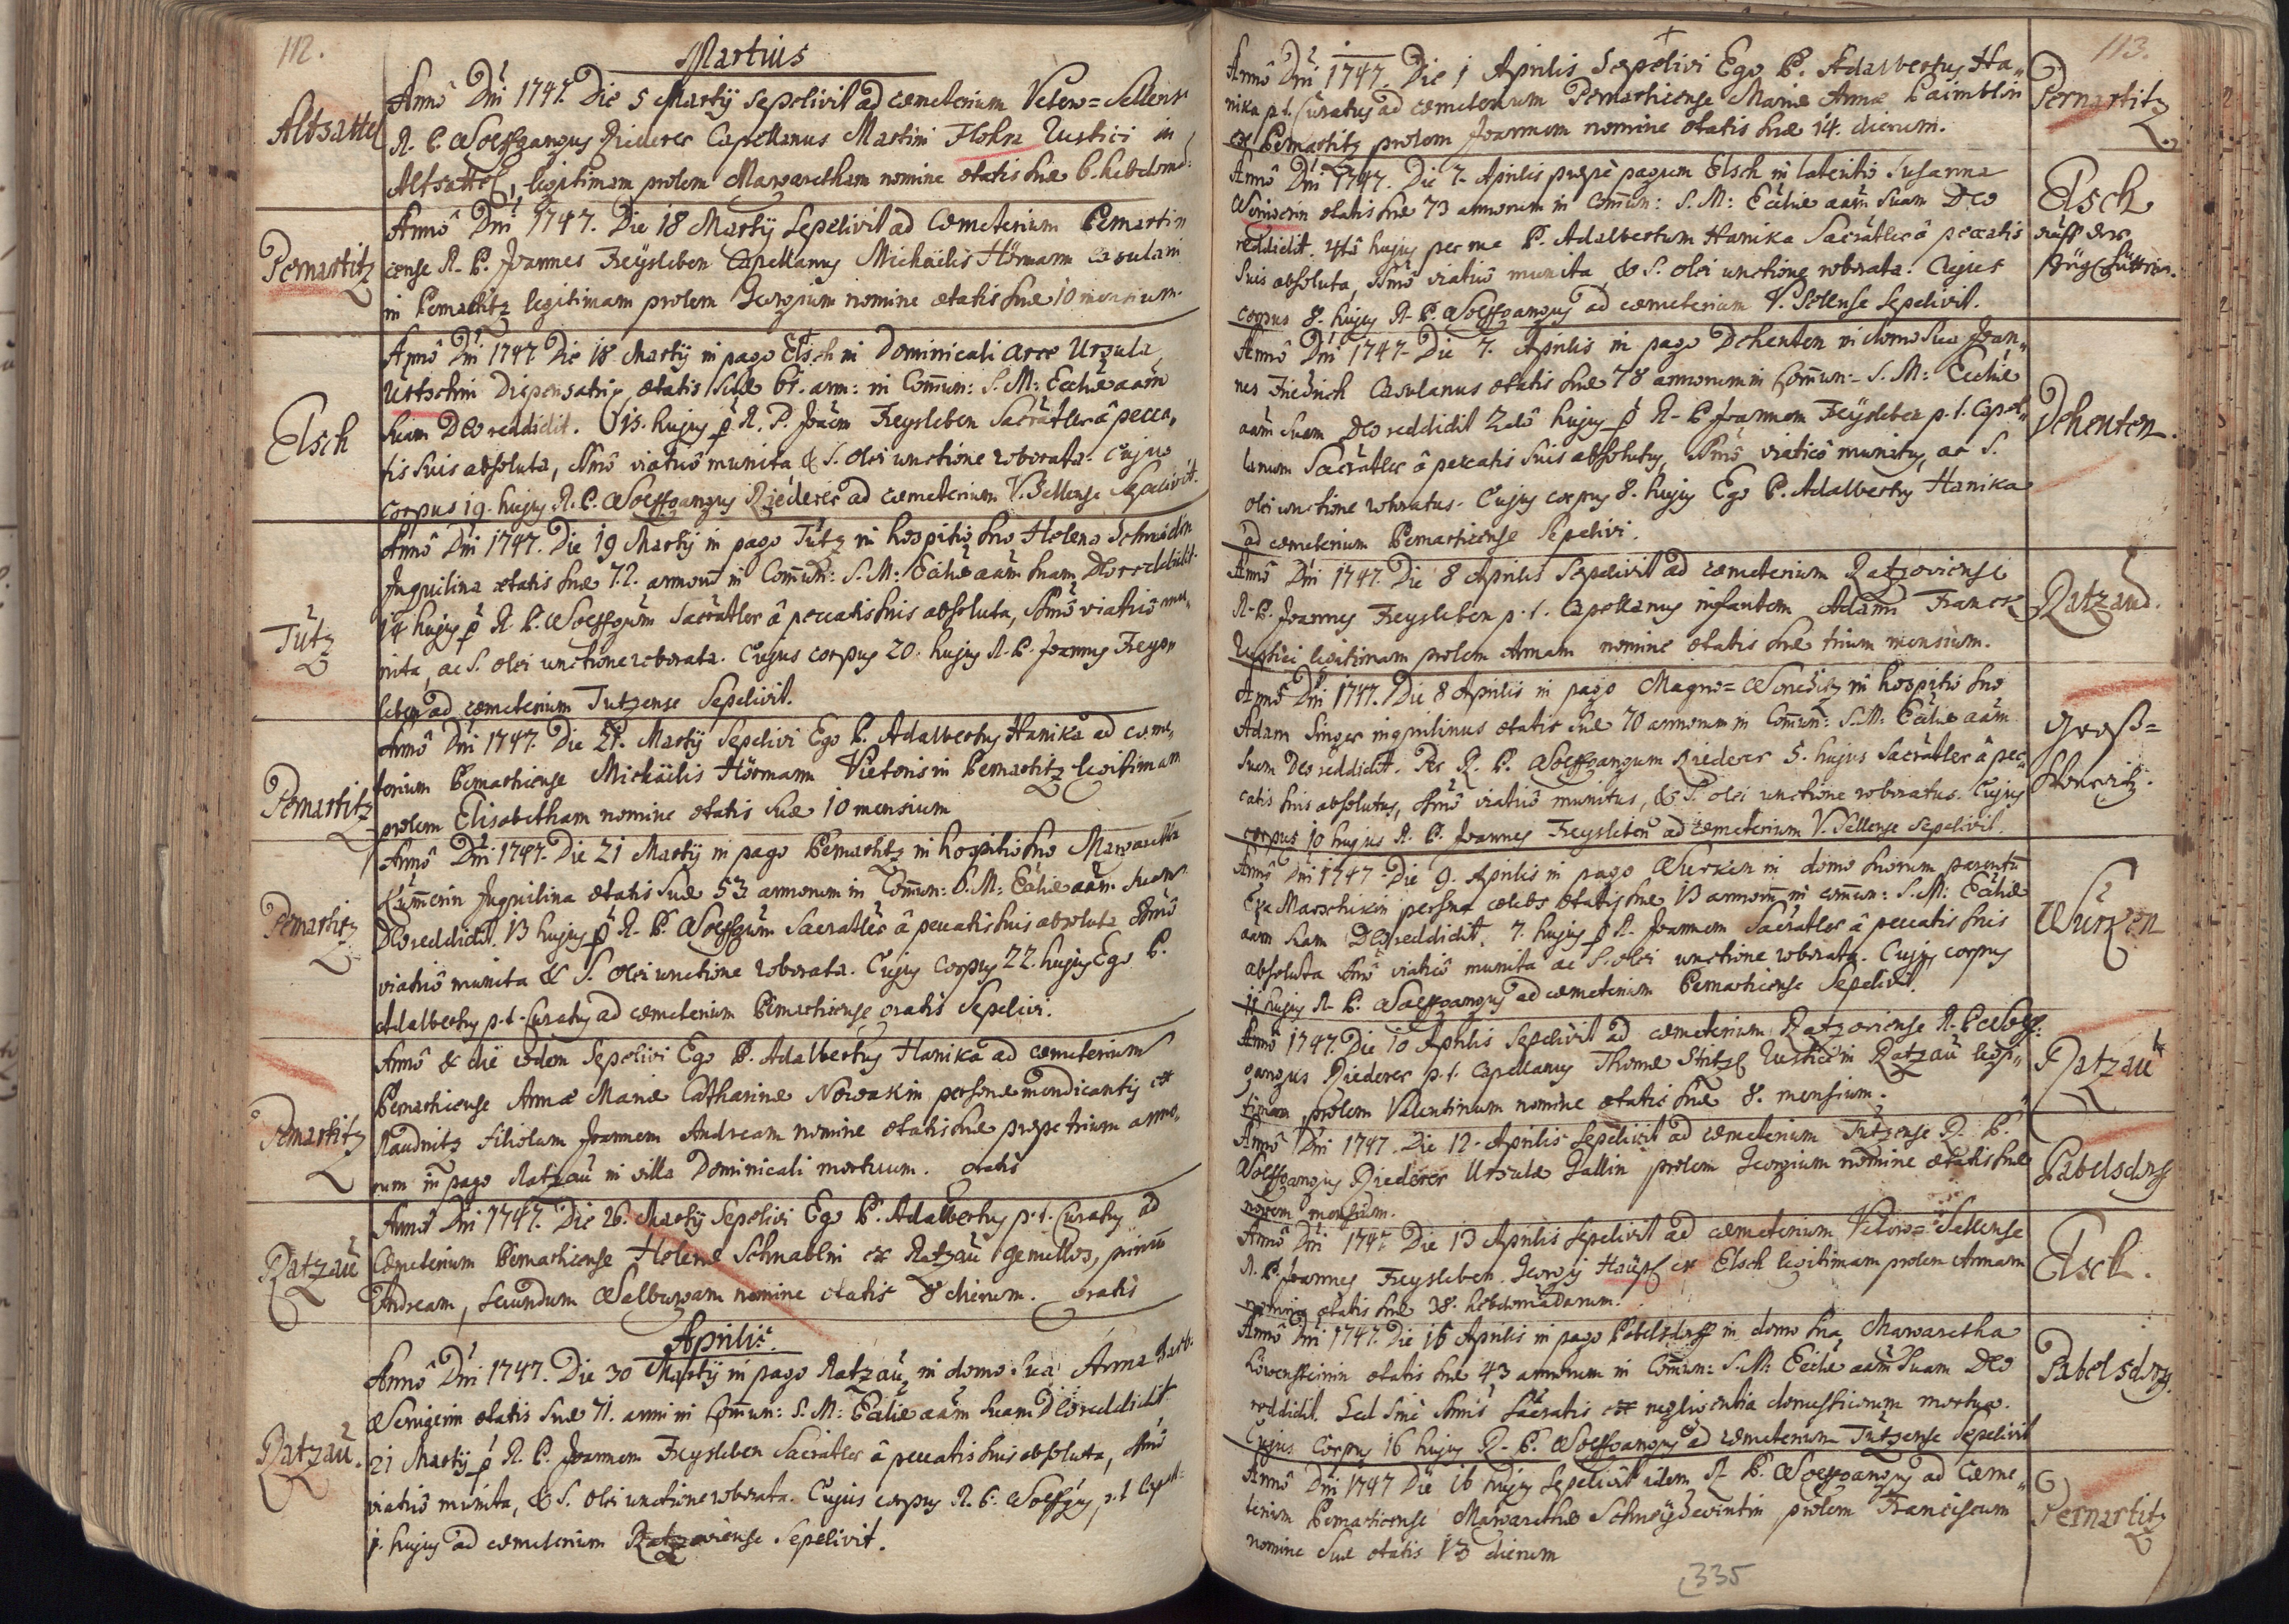 112.
Martius
Altsattel
Anno Dni 1747. Die 5 Martij sepelivit ad cœmeterium Vetero=Sellense
R. P. Wolffgangus Riederer Capellanus Martini Flohra Rustici in
Altsattl, legitimam prolem Margaretham nomine ætatis suæ 6. hebdomad:
Pernartitz
Anno Dni 1747. Die 18 Martij sepelivit ad Cœmeterium Pernarti
cense R. P. Joannes Freysleben Capellanus Michaëlis Hörmann Casulani
in Pernartitz legitimam prolem Georgium nomine ætatis suæ 10 mensium.
Elsch
Anno Dni 1747 Die 18 Martij in pago Elsch in Dominicali arce Ursula
Dispensatrix ætatis suæ 61. ann: in Com̃un: S. M: Eccliæ aãm
suam Deo reddidit. 15. hujus p R. P. Joañem Freysleben Sacratler â pecca„
tis suis absoluta, Ssmô viaticô munita & S. olei unctione roborata. Cujus
corpus 19. hujus R. P. Wolffgangus Riederer ad cœmeterium V. Sellense Sepelivit.
Tütz
Anno Dni 1747. Die 19 Martij in pago Tütz in hospitio suo Helena Schmidin
Inquilina ætatis suæ 72. annorũ in Com̃un: S. M: Eccliæ aãm suam Deo reddidit.
14 hujus p R. P. Wolffgũm Sacratler â peccatis suis absoluta, Ssmô viaticô mu„
nita, ac S. olei unctione roborata. Cujus corpus 20. hujus R. P. Joannes Freys„
leben ad cœmeterium Tutzense Sepelivit.
Pernartitz
Anno Dni 1747. Die 21. Martij Sepelivi Ego P. Adalbertus Hanika ad cœme„
terium Pernarticense Michaëlis Hörmann Vietoris in Pernartitz legitimam
prolem Elisabetham nomine ætatis suæ 10 mensium
Pernartitz
Anno Dni 1747. Die 21 Martij in pago Pernartitz in hospitio suo Margaretha
Inquilina ætatis suæ 53 annorum in Com̃un: S. M: Eccliæ aãm suam
Deo reddidit. 13 hujus p R. P. Wolffgũm Sacratler â peccatis suis absoluta Ssmô
viaticô munita & S. olei unctione roborata. Cujus corpus 22. hujus Ego P.
Adalbertus p. t. Curatus ad cœmeterium Pernarticense gratis Sepelivi.
Pernartitz
Anno & die eodem Sepelivi Ego P. Adalbertus Hanika ad cœmeterium
Pernarticense Annæ Mariæ Catharinæ Nowakin personæ mendicantis ex
Raudnitz filiolum Joannem Andream nomine ætatis suæ prope trium anno„
rum in pago Ratzau in villa Dominicali mortuum. gratis
Ratzau
Anno Dni 1747. Die 26. Martij Sepelivi Ego P. Adalbertus p. t. Curatus ad
Cœmeterium Pernarticense Helenæ Schnablin ex Ratzau gemellos, primũ
Andream, secundum Walburgam nomine ætatis 8 dierum. gratis
Aprilis.
Ratzau.
Anno Dni 1747. Die 30 Martij in pago Ratzau, in domo sua Anna
ætatis suæ 71. anni in Com̃un: S. M: Eccliæ aãm suam Deo reddidit
21 Martij p R. P. Joannem Freysleben Sacratler â peccatis suis absoluta, Ssmô
viaticô munita, & S. olei unctione roborata. Cujus corpus R. P. Wolffgus p. t. Capel:
1. hujus ad cœmeterium Ratzoviense Sepelivit.
113.
Anno Dni 1747. Die 1 Aprilis Sepelivi Ego P. Adalbertus Ha„
nika p. t. Curatus ad cœmeterium Pernarticense Mariæ Annæ
ex Pernartitz prolem Joannem nomine ætatis suæ 14. dierum.
Pernartitz
Anno Dni 1747. Die 7. Aprilis prope pagum Elsch in Susanna
ætatis suæ 73 annorum in Comun: S. M: Eccliæ aãm suam Deo
reddidit. 4tâ hujus per me P. Adalbertum Hanika Sacratler â peccatis
suis absoluta, Ssmô viaticô munita, & S. olei unctione roborata. Cujus
corpus 8. hujus R. P. Wolffgangus ad cœmeterium V. Sellense Sepelivit.
Elsch
auff der
Anno Dni 1747. Die 7. Aprilis in pago Dehenten in domo sua Joan„
nes Friedrich Casulanus ætatis suæ 78 annorum in Com̃un: S. M: Eccliæ
aãm suam Deo reddidit 2dâ hujus p R. P. Joannem Freysleben p. t. Capel„
lanum Sacratler â peccatis suis absolutus, Ssmô viaticô munitus, ac S.
olei unctione roboratus. Cujus corpus 8. hujus Ego P. Adalbertus Hanika
ad cœmeterium Pernarticense Sepelivi.
Dehenten.
Anno Dni 1747. Die 8 Aprilis Sepelivit ad cœmeterium Ratzoviense
R. P. Joannes Freysleben p. t. Capellanus infantem Adami Franck
Rustici legitimam prolem Annam nomine ætatis suæ trium mensium.
Ratzau.
Anno Dni 1747. Die 8 Aprilis in pago Magno= in hospitio suo
Adam Singer inquilinus ætatis suæ 70 annorum in Com̃un: S. M: Eccliæ aãm
suam Deo reddidit. Per R. P. Wolffgangum Riederer 5. hujus Sacratler â pec„
catis suis absolutus, Ssmô viaticô munitus, & S. olei unctione roboratus. Cujus
corpus 10 hujus R. P. Joannes Freysleben ad cœmeterium V. Sellense Sepelivit.
Groß=
Anno Dni 1747. Die 9. Aprilis in pago Wurken in domo suorum parentũ
Eva persona cœlebs ætatis suæ 13 annorũ in com̃un: S. M: Eccliæ
aãm suam Deo reddidit. 7. hujus p R. Joannem Sacratler â peccatis suis
absoluta Ssmô viaticô munita ac S. olei unctione roborata. Cujus corpus
11 hujus R. P. Wolffgangus ad cœmeterium Pernarticense Sepelivit.
Würken
Anno 1747. Die 10 Aprilis Sepelivit ad cœmeterium Ratzoviense R. P. Wolff:
gangus Riederer p. t. Capellanus Thomæ Rustici in Ratzau legi„
timam prolem Valentinum nomine ætatis suæ 8. mensium.
Ratzau
Anno Dni 1747. Die 12. Aprilis Sepelivit ad cœmeterium Tutzense R. P.
Wolffgangus Riederer Ursulæ Gallin prolem Georgium nomine ætatis suæ
novem mensium.
Pabelsdorff
Anno Dni 1747 Die 13 Aprilis sepelivit ad cœmeterium Vetero=Sellense
R. P. Joannes Freysleben. Georgij ex Elsch legitimam prolem Annam
nomine ætatis suæ 38. hebdomadarum.
Elsch.
Anno Dni 1747. Die 16 Aprilis in pago Pabelsdorff in domo sua, Margaretha
Löwensteinin ætatis suæ 43 annorum in Com̃un: S. M: Eccliæ aãm suam Deo
reddidit. Sed sine Ssmis Sacratis ex negligentia domesticorum mortua.
Cujus Corpus 16 hujus R. P. Wolffgangus ad cœmeterium Tutzense Sepelivit
Pabelsdorff
Anno Dni 1747 Die 16 hujus Sepelivit idem R. P. Wolffgangus ad Cœme„
terium Pernarticense Margarethæ prolem Franciscum
nomine suæ ætatis 13 dierum
Pernartitz
335